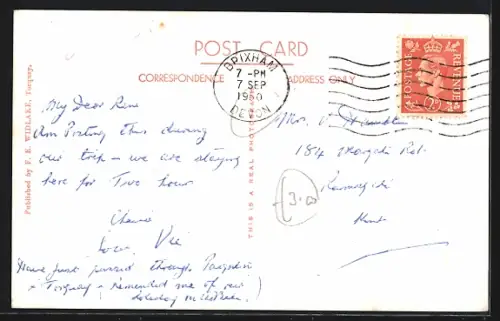 POST CARD
CORRESPONDENCE
ADDRESS ONLY
BRIXHAM
7 - PM
7 SEP
1950
DEVON
POSTAGE
REVENUE
Published by F. E. WIDLAKE, Torquay.
THIS IS A REAL PHOTOGRAPH
My Dear Rene
Am Posting this during
our trip - we are staying
here for Two hour
Cheerio
love Vie
Have just passed through Paignton
+ Torquay - reminded me of our
holiday
Mrs.
184 Rd.
Kent
3.00